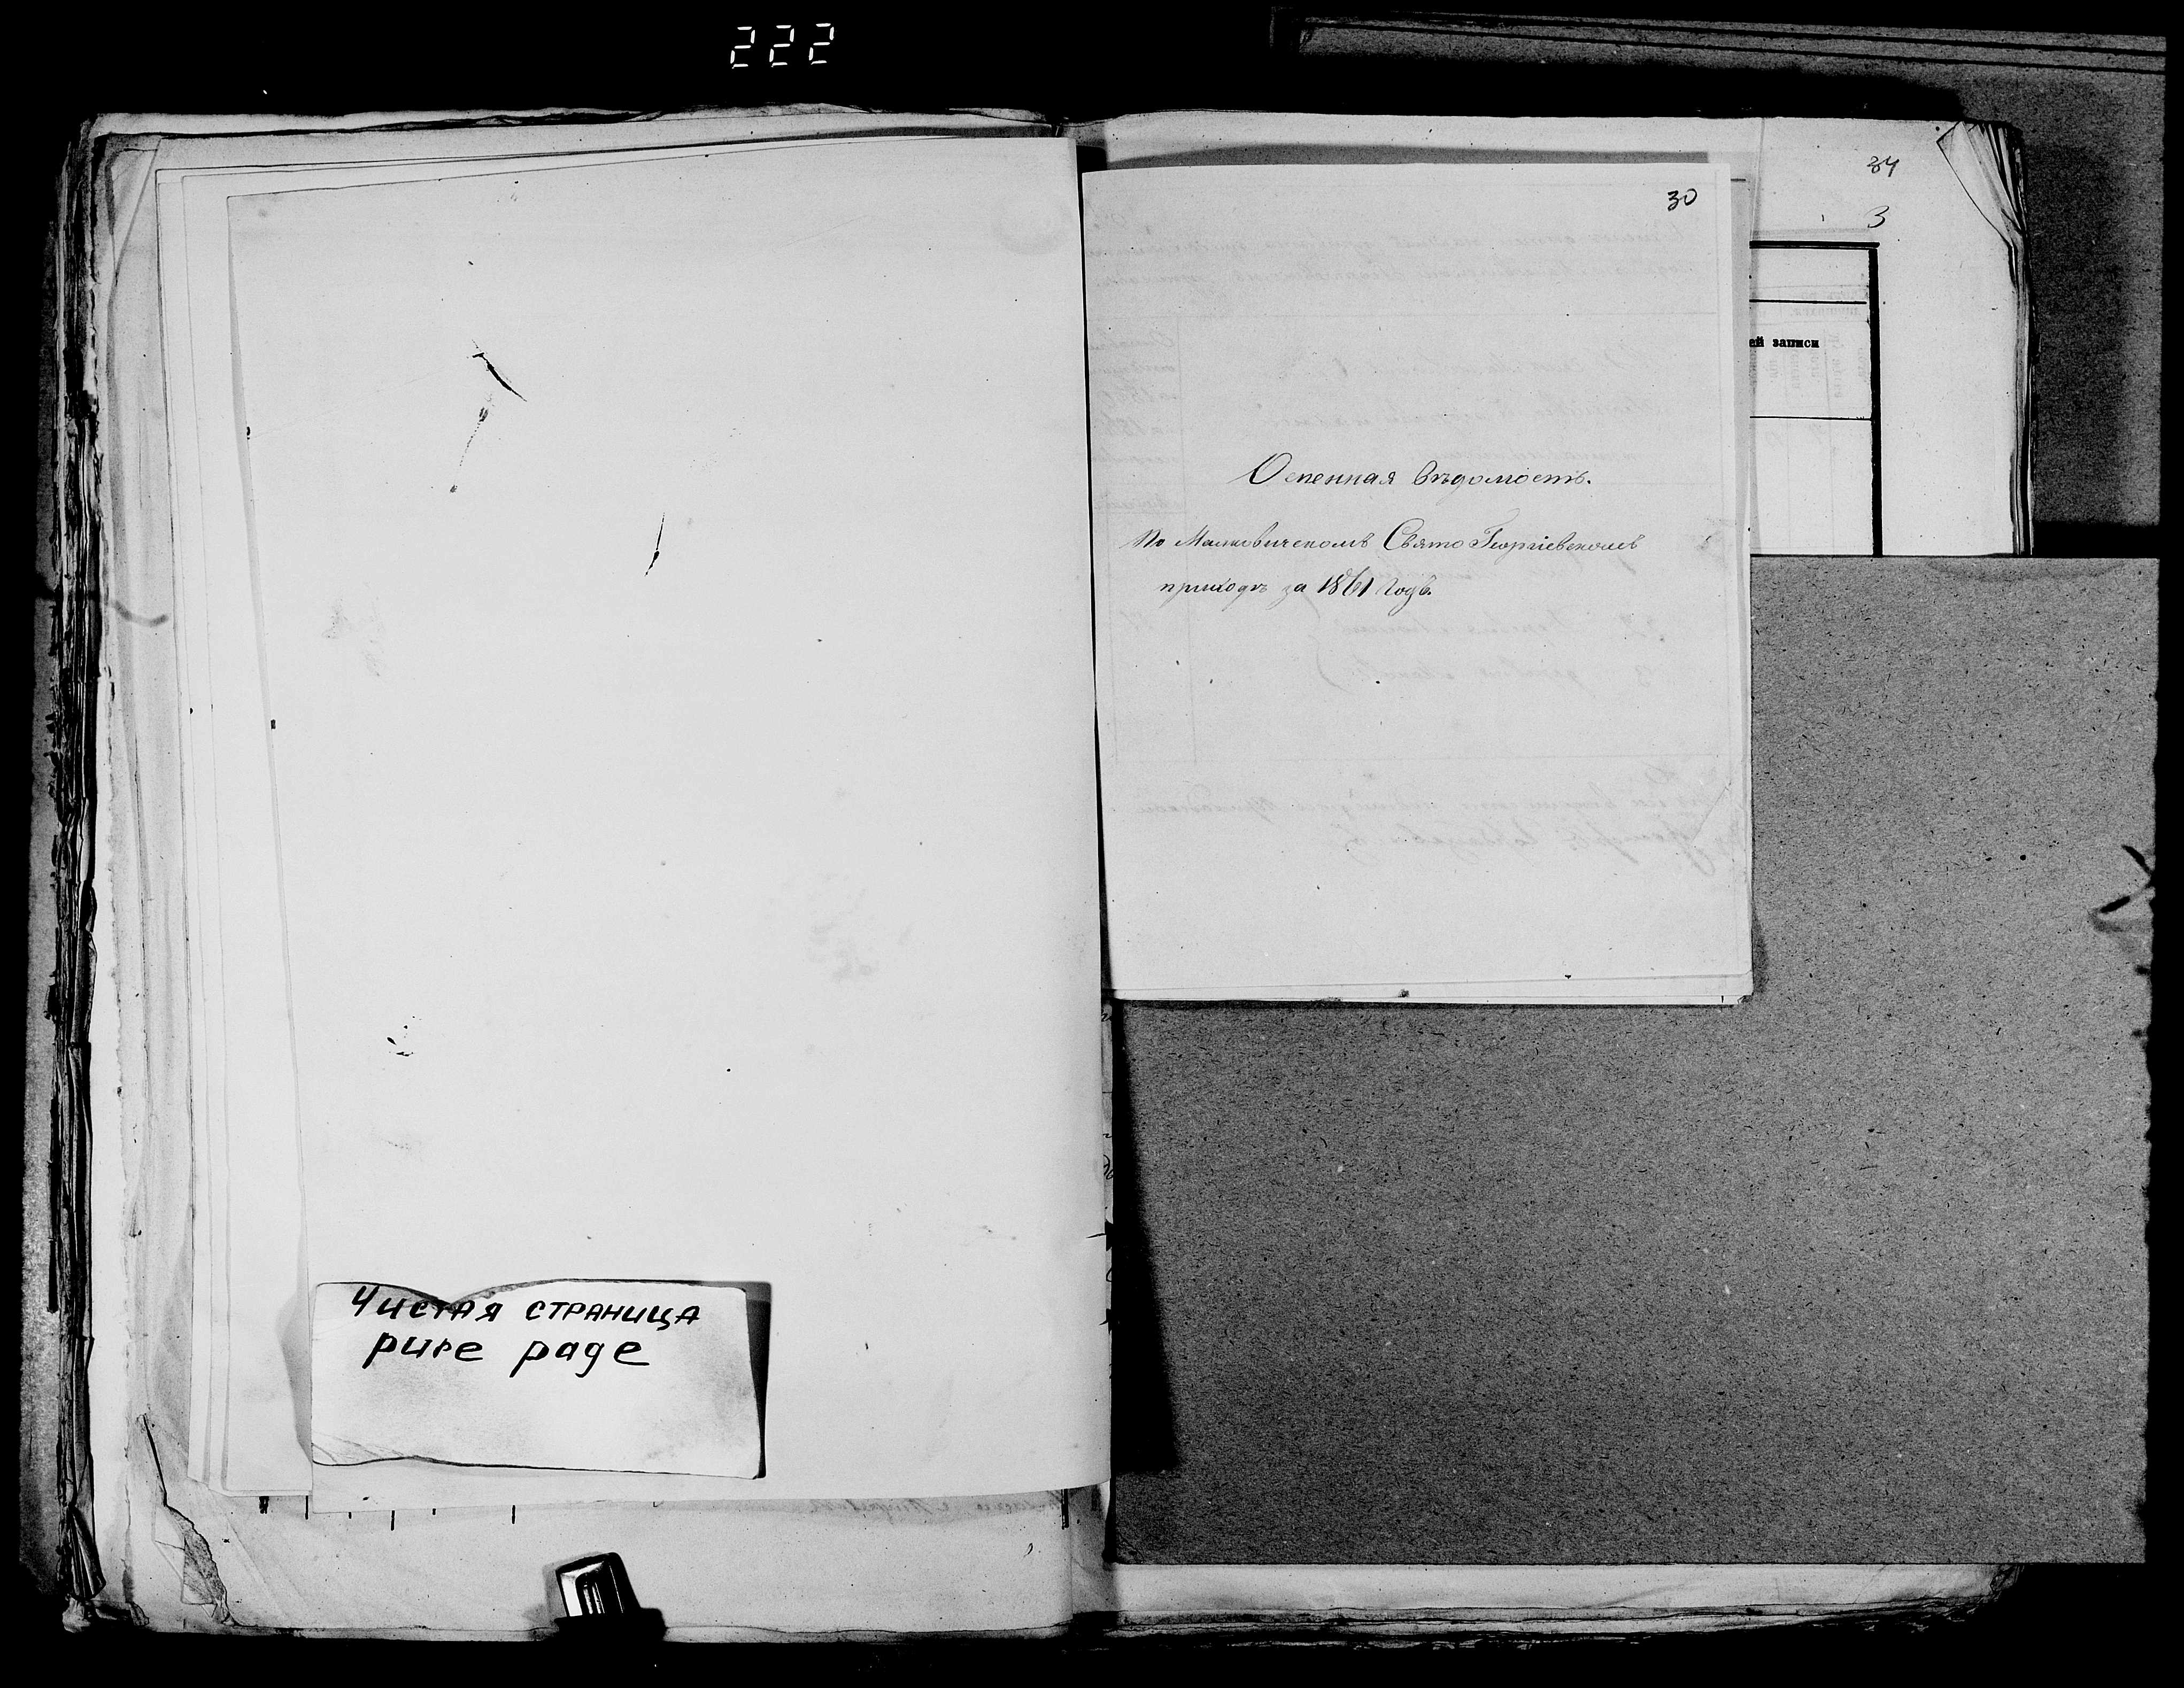 222
34
30
3
ей записи
Оспенная вѣдомость.
По Малковическомъ Свято Георгіевскомъ
приходѣ за 1861 годъ.
Чистая страница
pure page